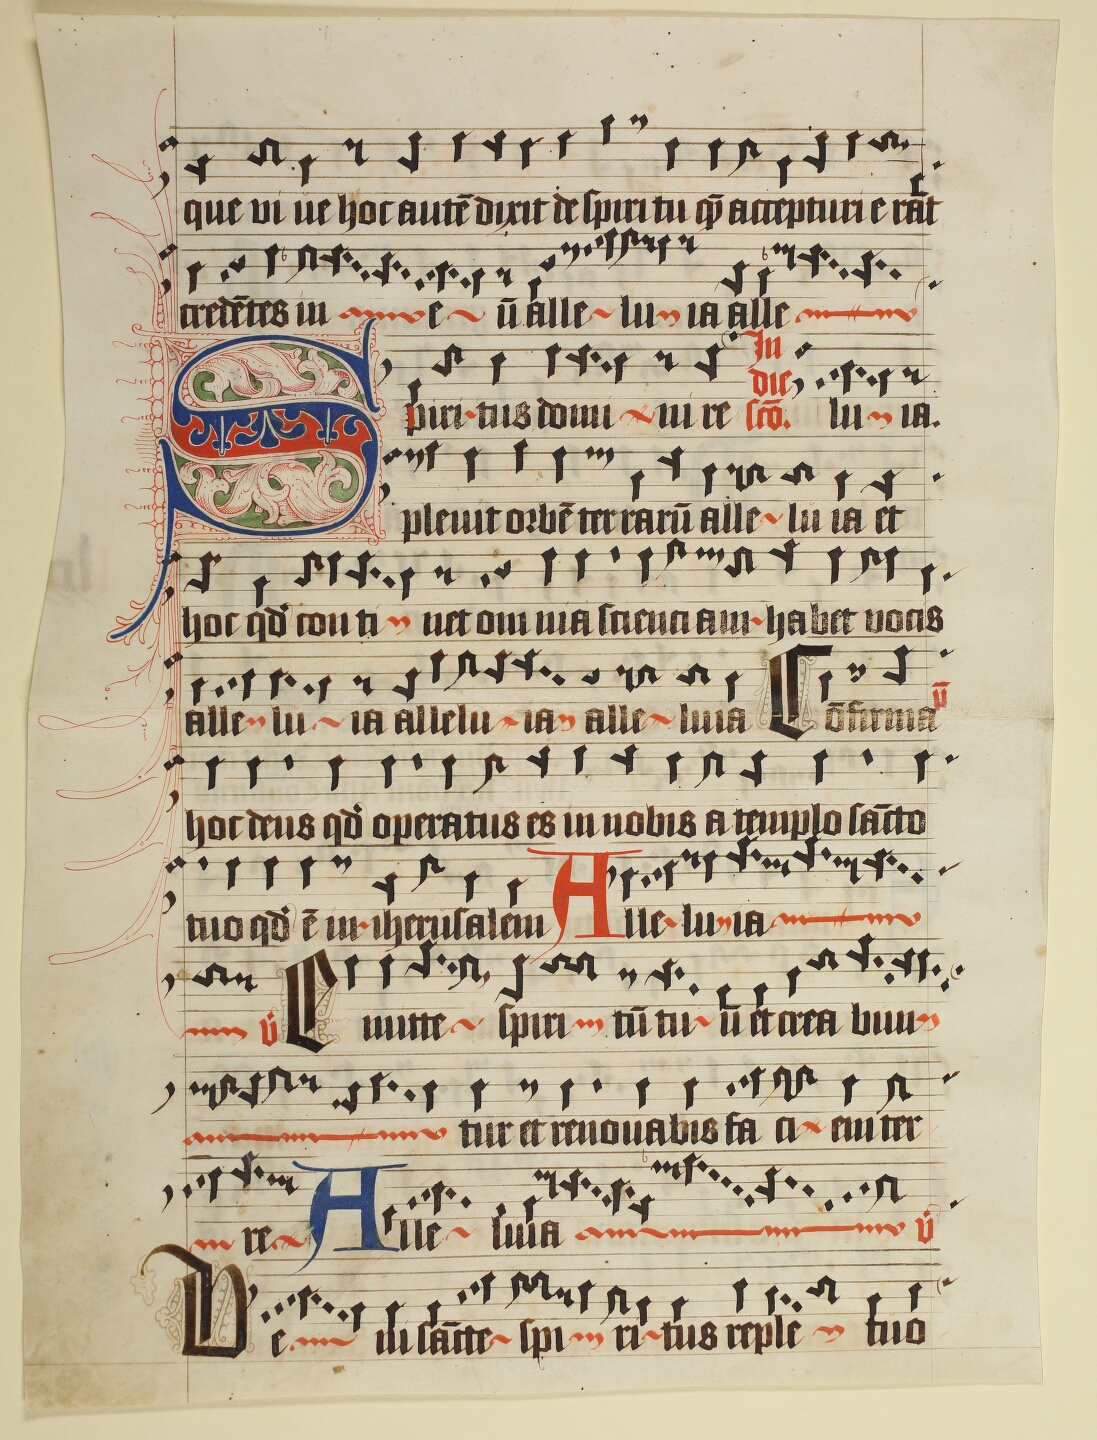 que vi ue hoc autē dixit de spiri tu qē accepturi e rāt
credētes in e ū alle lu ia alle
In die
Spiri tus domi ni re scō. lu ia.
pleuit orbē ter rarū alle lu ia et
hoc qd̄ con ti net om nia scienci am habet vocis
alle lu ia allelu ia alle luia Cōfirma v̄
hoc deus qd̄ operatus es in nobis a templo sācto
tuo qd̄ ē in iherusalem Alle lu ia
v̄ Emitte spiri tū tu ū et crea bun
tur et renouabis fa ci em ter
re Alle luia v̄
Ve ni sācte spi ri tus reple tuo